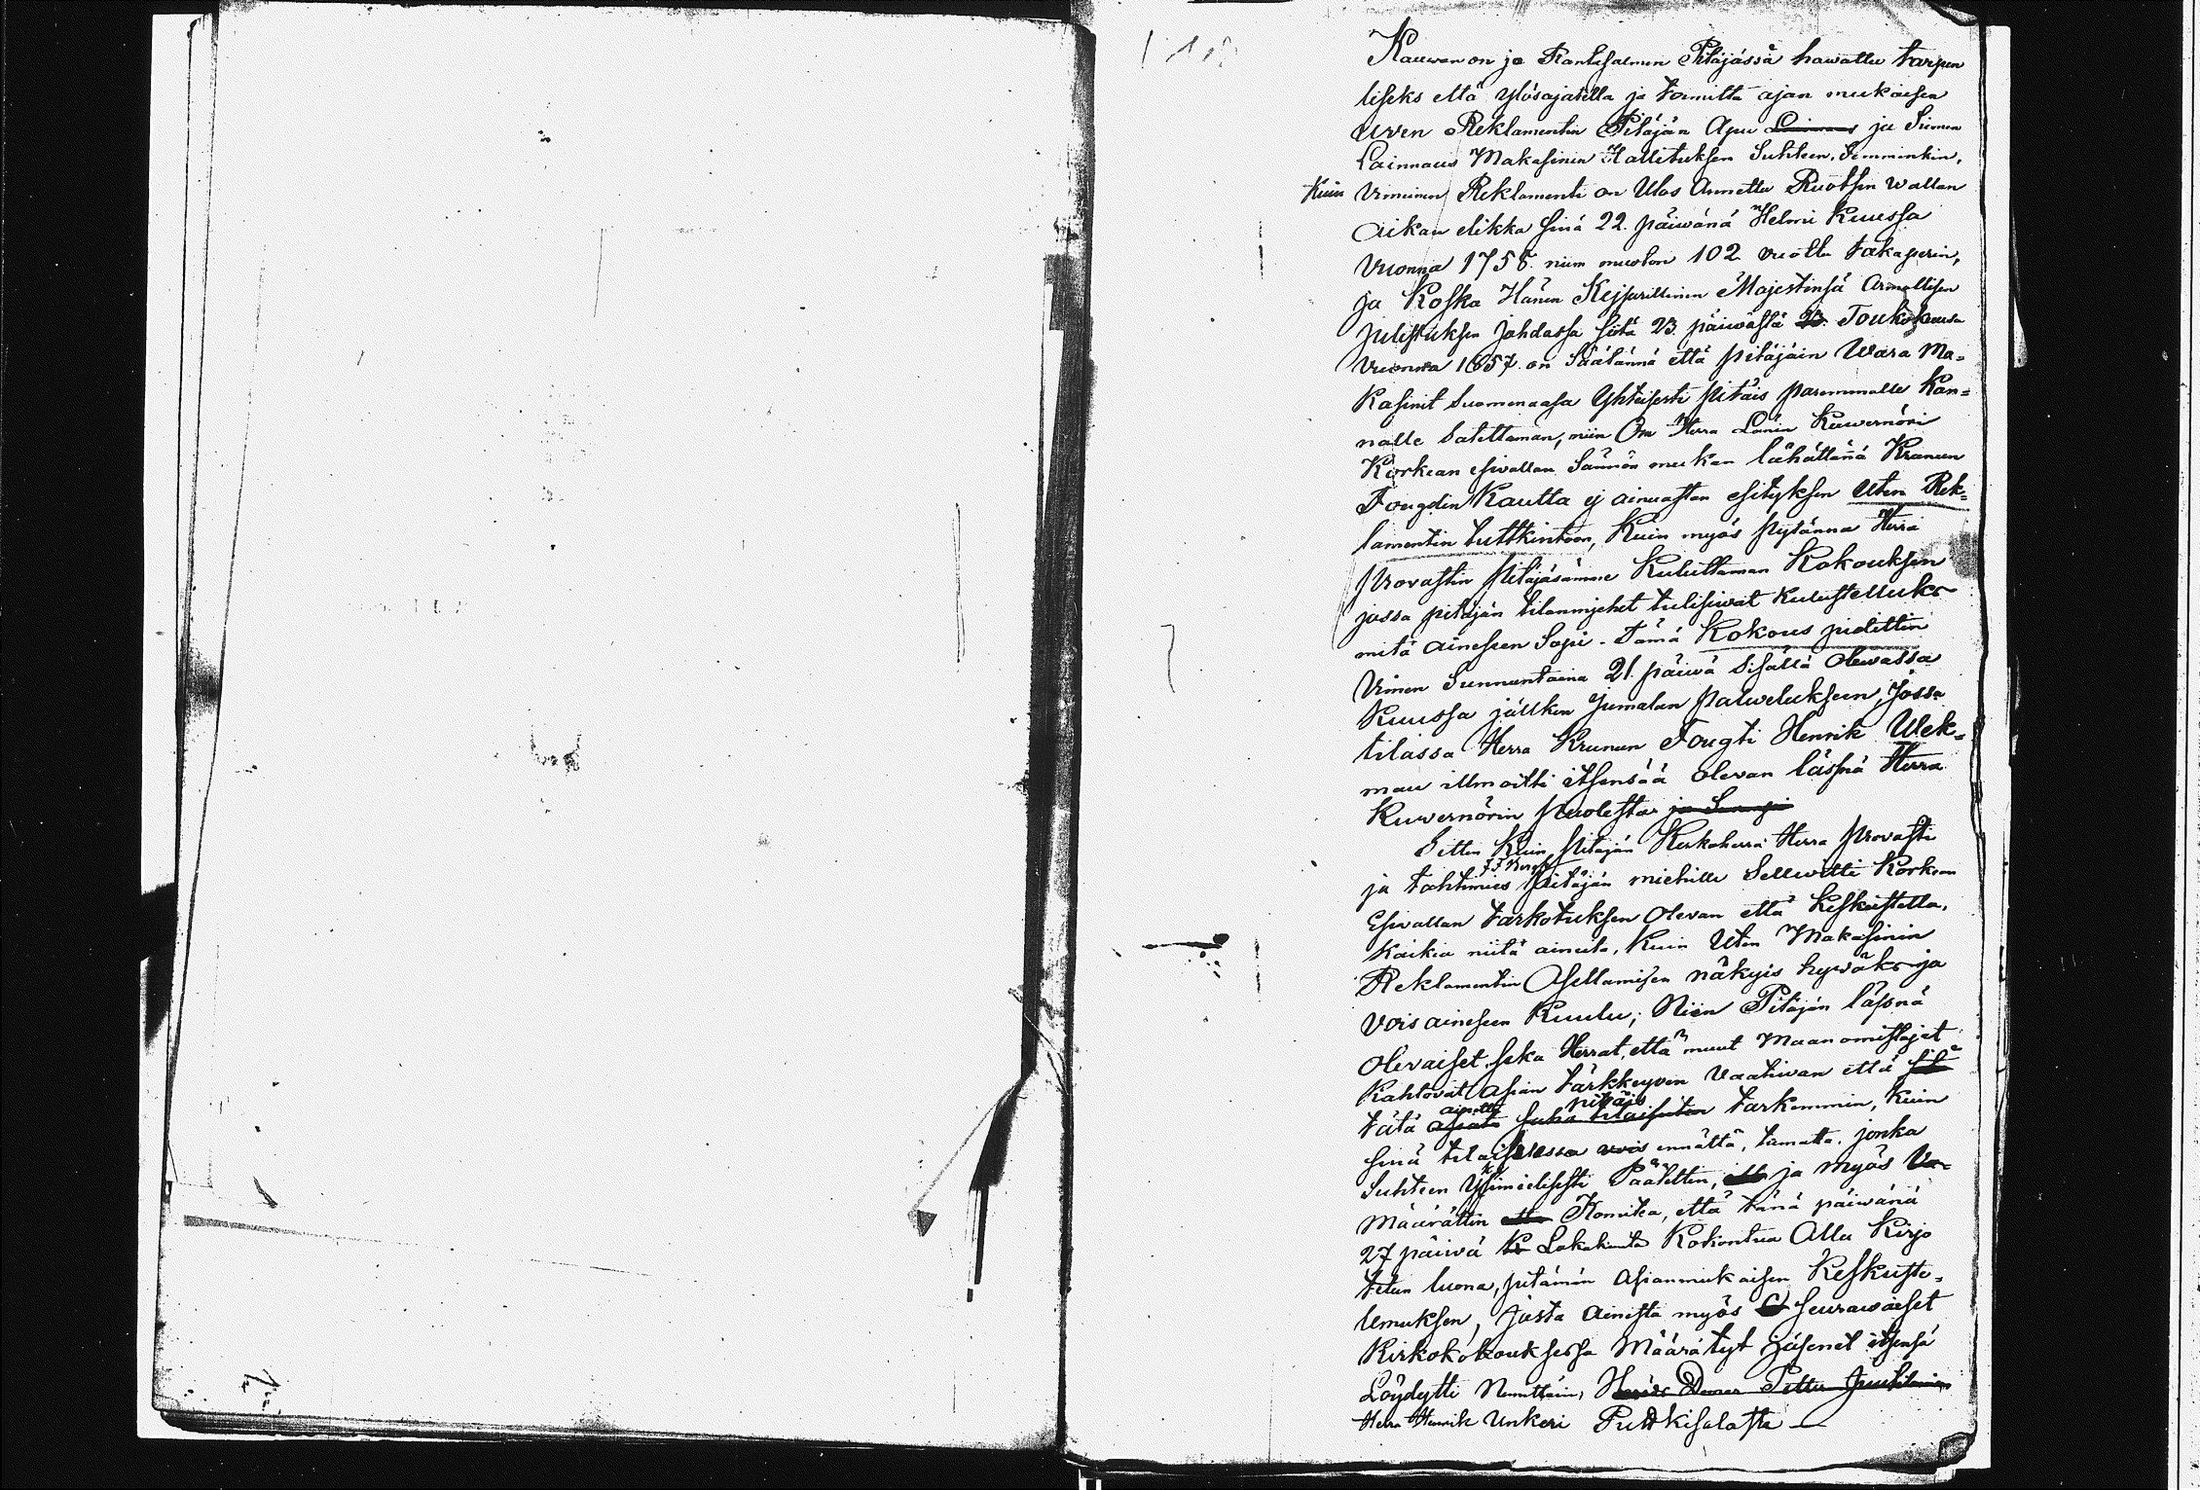 Kauwan on jo Rantasalmen Pitäjässä hawattu tarpen
liseks että ylösajatella ja toimitta ajan mukaisen
uven Reklamentin Pitäjän Apu Lainaus ja Siemen
Lainnaus Makasinin Hallituksen Suhteen, Semminkin,
Kuin Viimeinen Reklamenti on Ulos Annettu Ruotsin wallan
aikan elikka sinä 22. päiwänä Helmi Kuussa
Vuonna 1756. niin muotoin 102 vuotta takaperin,
ja Koska Hänen Kejsarillinen Majestetinsä Armollisen
Julistuksen johdassa siitä 23 päiwästä 23. Toukokuusa
Vuonna 1857. on Säätännä että pitäjäin Wara Ma-
kasinit Suomenaasa Yhteisesti pitäis paremmalle Kan-
nalle Satettaman, niin On Herra Länin Kuwernöri
Korkian esivallan Sännön mukan lähättännä Kranun
Fougdin Kautta ej ainuastan esityksen Uten Rek-
lamentin tuttkintoon, Kuin myös pytänna Herra
Provastin pitäjäsämme Kuluttaman Kokouksen
jossa pitäjän tilanmjehet tulisiwat kulustelluks
mitä aineseen Sopi. Tämä Kokous pidettin
Vimen Sunnuntaina 21. päiwä Sisällä olewassa
Kuussa jälken Jumalan palwelukseen, Jossa
tilassa Herra Krunun Fougti Henrik Wek-
man illmoitti itsensää olevan läsnä Herra
Kuvernörin puolesta ja Samapi
Sitten Kuin pitäjän Kirkoherra Herra Provasti
ja tahtimies pitäjän miehille Sellwitti Korkian
Esivallan tarkotuksen olevan että Keskustella,
Kaikia niitä aineita, Kuin Uten Makasinin
Reklamentin Asettamisen näkyis hywäks ja
Vois aineseen Kuulu; Niin Pitäjän läsnä
olevaiset seka Herrat, että muut Maanomistajat
Kahtovat Asian tärkkeyven Vaativan että sitä
tätä asiata ainetta pitäis tarkemmin, Kuin
sinä tilaisuessa wois ennättä, tamatta. jonka
Suhteen Yksimielisesti Päätettin, ja myös
Määrättin että Komitea, että tänä päiwänä
27 päiwä Lokakuuta Kokontua Alla Kirjo
tetun luona, pitämän Asianmukaisen Keskuste-
lemuksen, Josta Ainesta myös seurawaiset
Kirkokokouksessa Määrätyt jäsenet itsensä
Löydytti Nimittäin,
Herra Henrik Unkeri Puttkisalasta